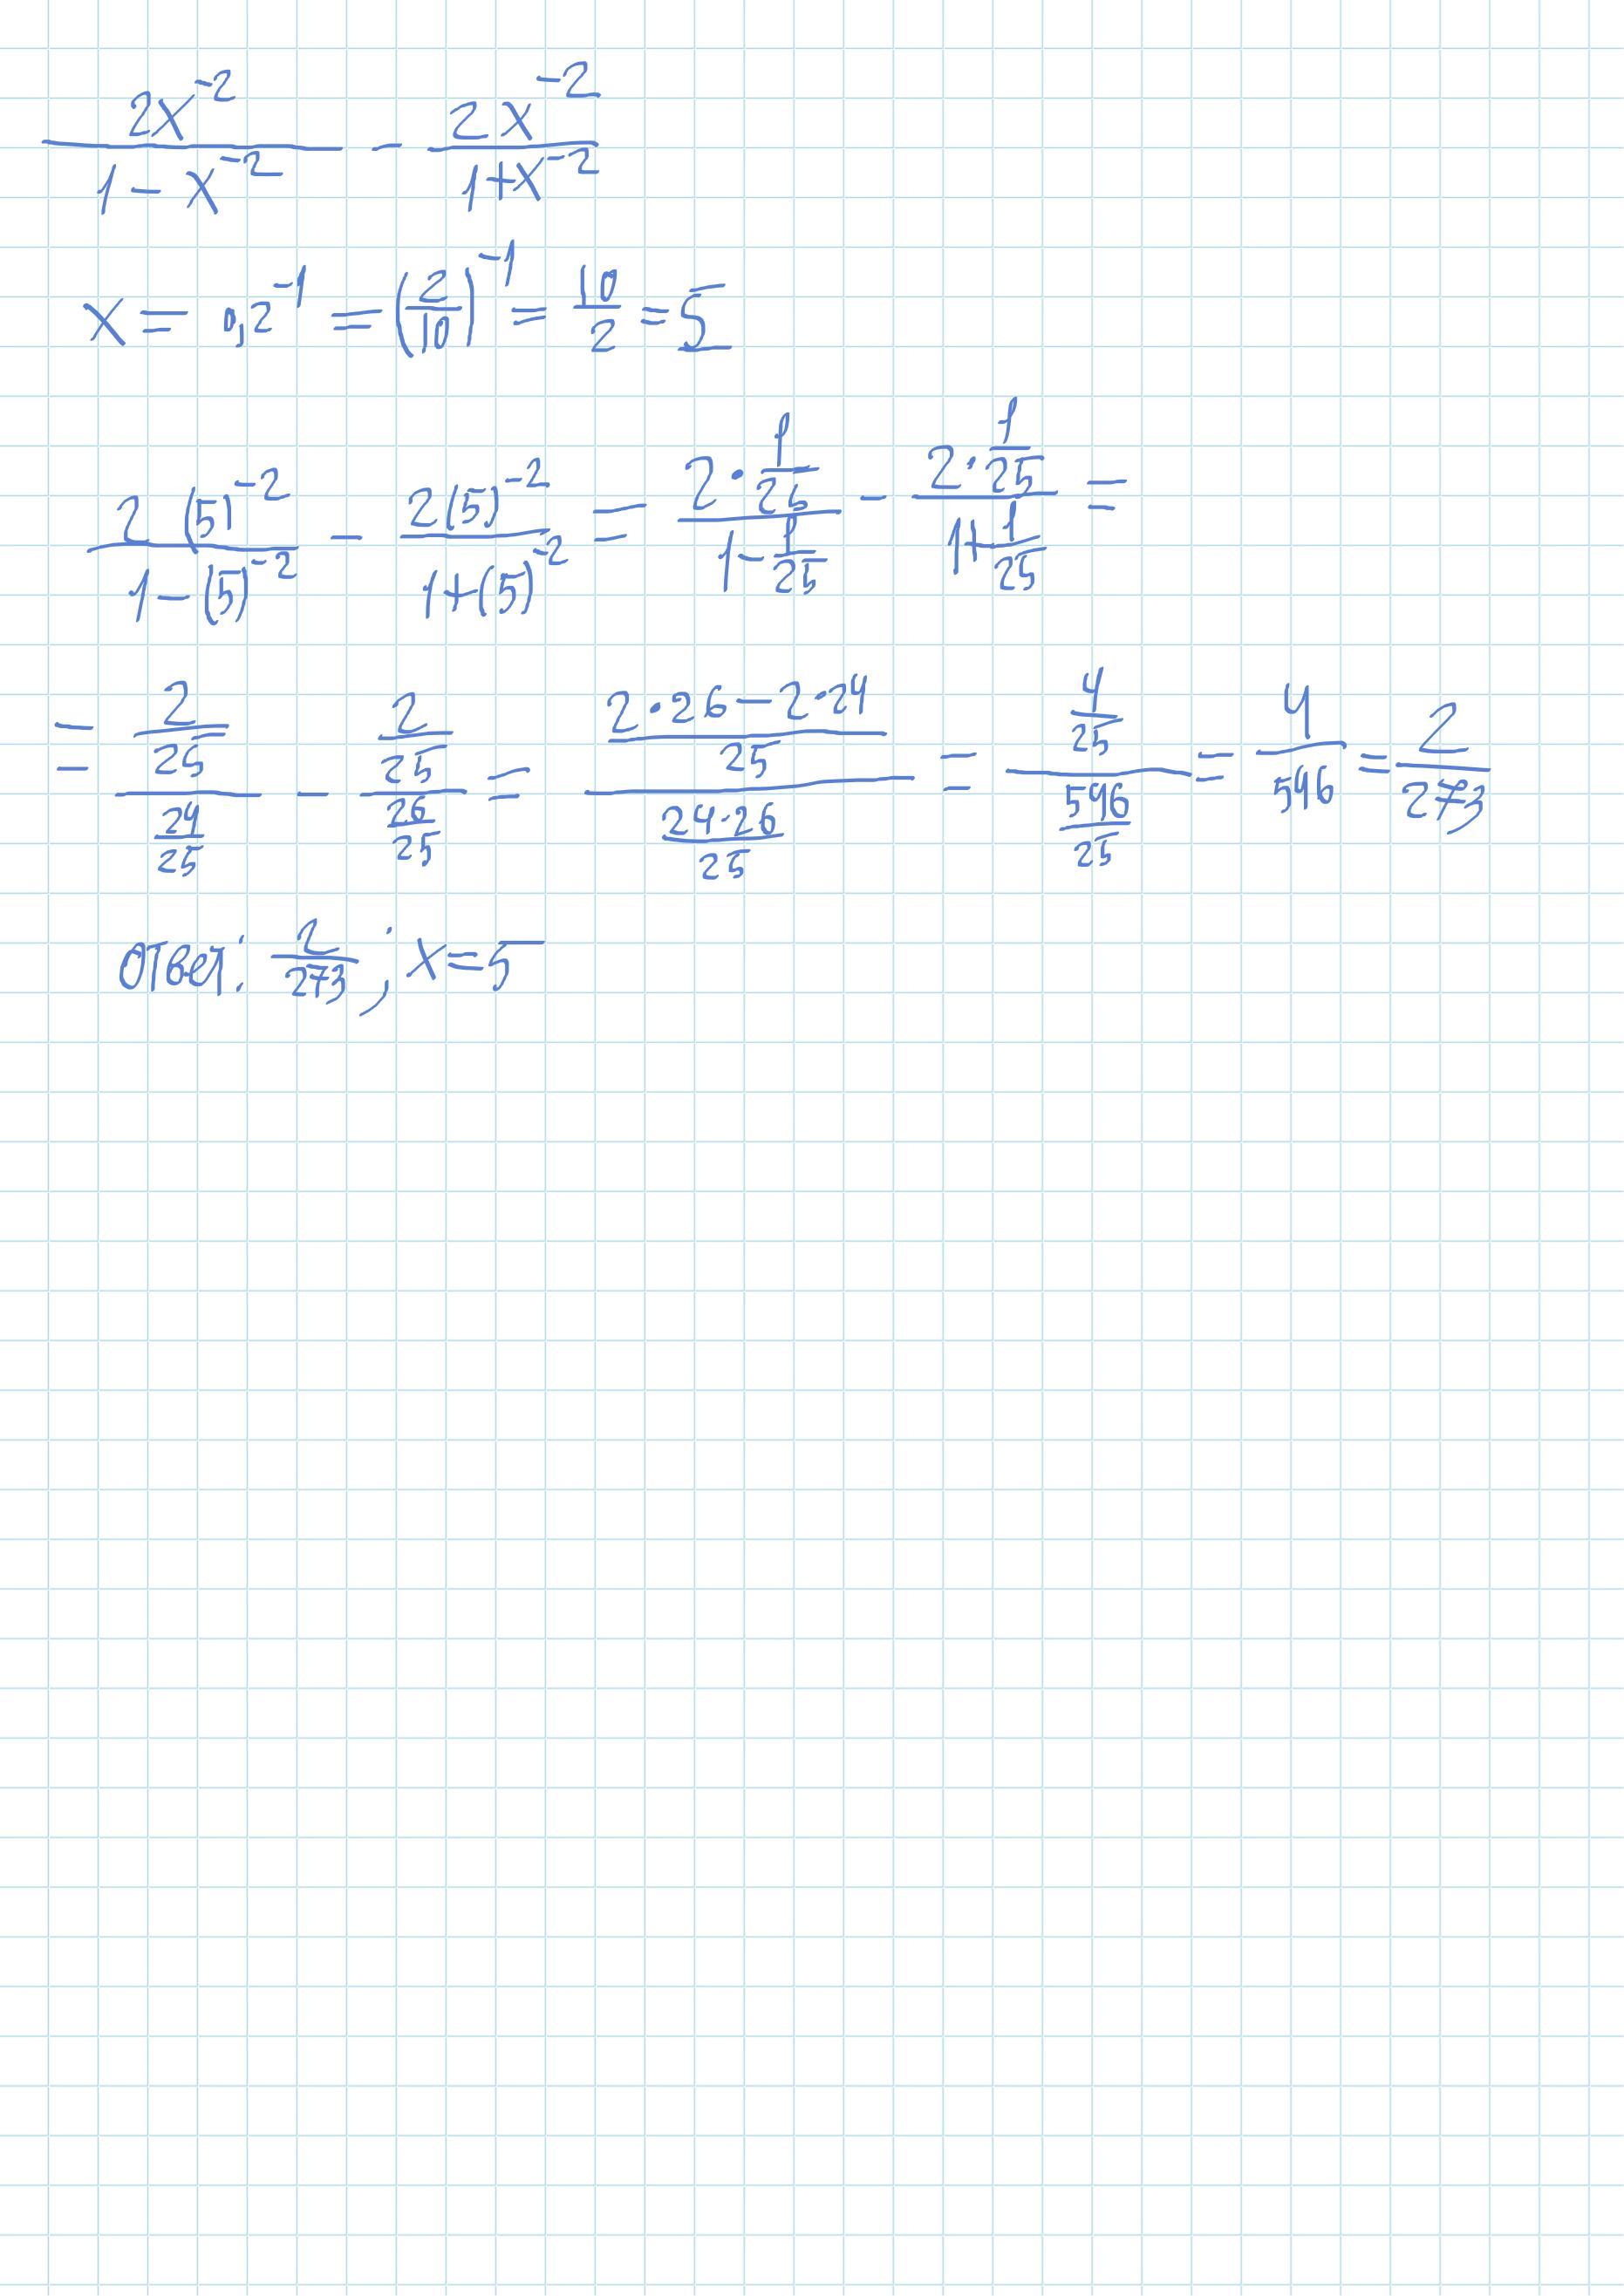 2x^-2 / (1 - x^-2) - 2x^-2 / (1+x^-2)
x = 0,2^-1 = (2/10)^-1 = 10/2 = 5
2(5)^-2 / (1-(5)^-2) - 2(5)^-2 / (1+(5)^-2) = (2·1/25) / (1-1/25) - (2·1/25) / (1+1/25) =
= (2/25) / (24/25) - (2/25) / (26/25) = ((2·26-2·24)/25) / ((24·26)/25) = (4/25) / (546/25) = 4/546 = 2/273
ответ: 2/273; x=5